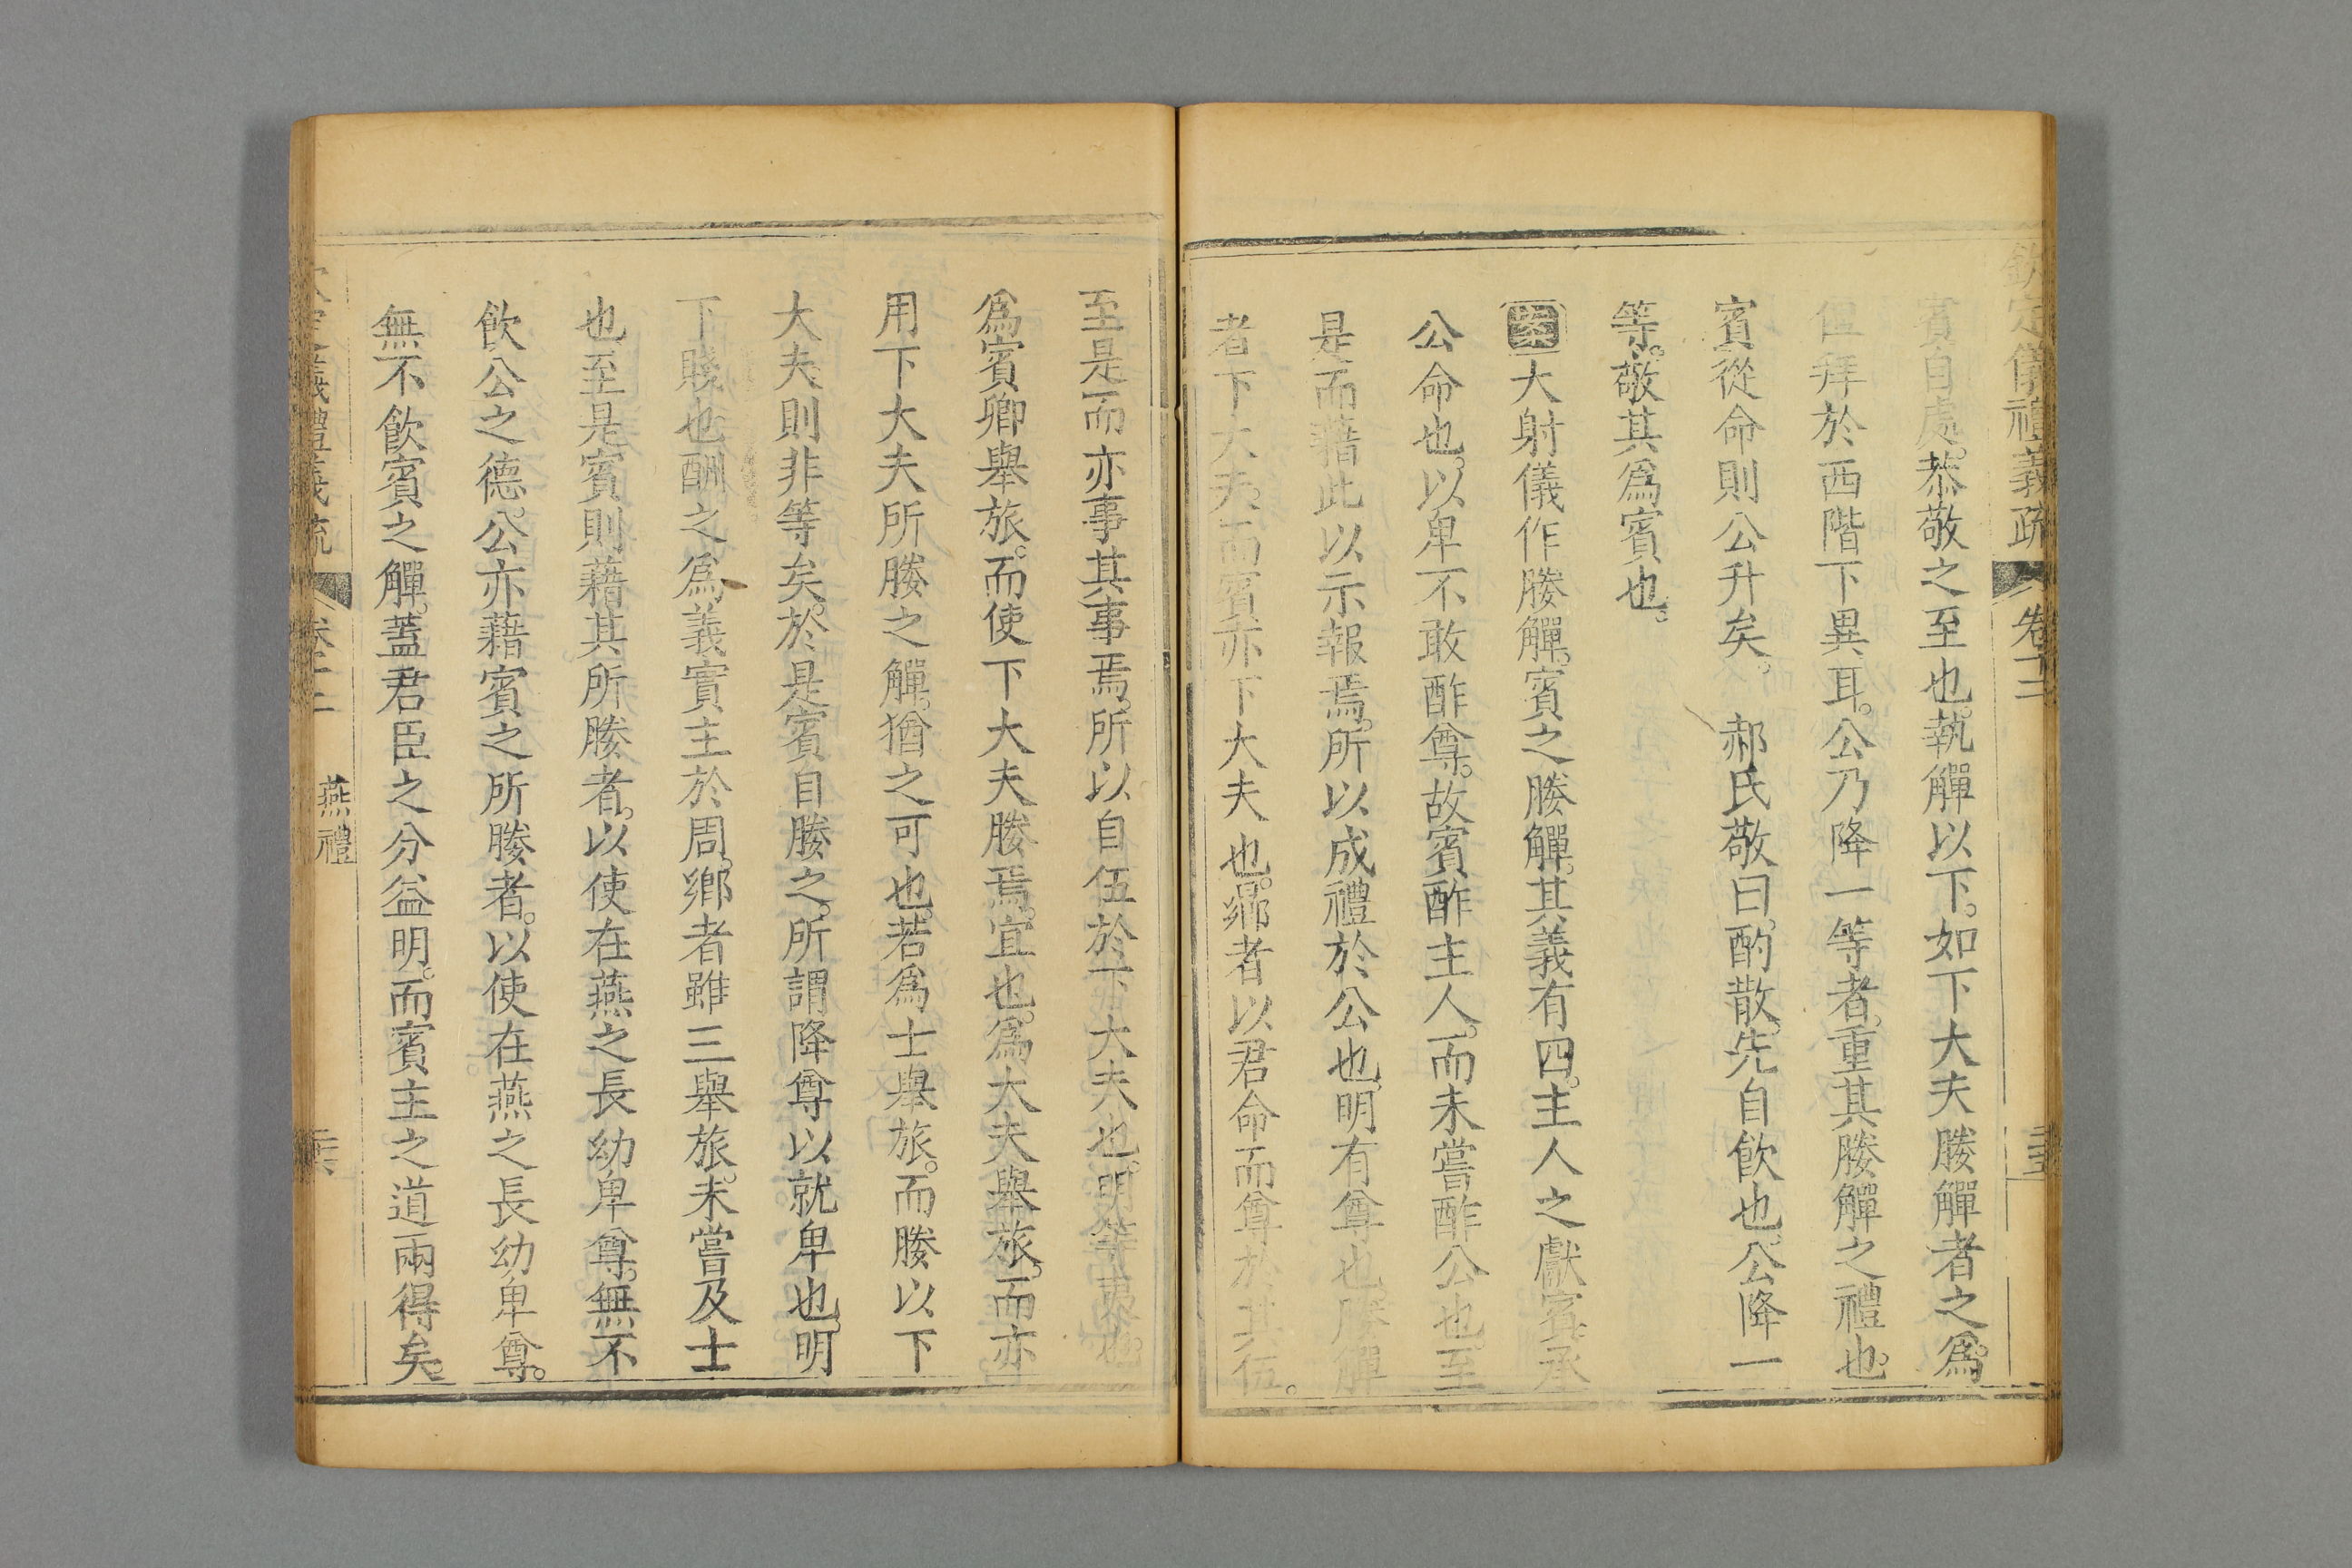 欽定儀禮義疏 卷十二
賓自處。恭敬之至也。執觶以下。如下大夫媵觶者之爲。
但拜於西階下異耳。公乃降一等者。重其媵觶之禮也。
賓從命則公升矣。 郝氏敬曰。酌散。先自飲也。公降一
等。敬其爲賓也。
案大射儀作媵觶。賓之媵觶。其義有四。主人之獻賓。承
公命也。以卑不敢酢尊。故賓酢主人。而未嘗酢公也。至
是而藉此以示報焉。所以成禮於公也。明有尊也。媵觶
者下大夫。而賓亦下大夫也。鄉者以君命而尊於其伍。
至是而亦事其事焉。所以自伍於下大夫也。明等夷也。
爲賓卿舉旅。而使下大夫媵焉。宜也。爲大夫舉旅。而亦
用下大夫所媵之觶。猶之可也。若爲士舉旅。而媵以下
大夫則非等矣。於是賓自媵之。所謂降尊以就卑也。明
下賤也。酬之爲義實主於周。鄉者雖三舉旅。未嘗及士
也至是賓則藉其所媵者。以使在燕之長幼卑尊。無不
飲公之德。公亦藉賓之所媵者。以使在燕之長幼卑尊。
無不飲賓之觶。蓋君臣之分益明。而賓主之道兩得矣。
儀禮義疏 卷十二 燕禮